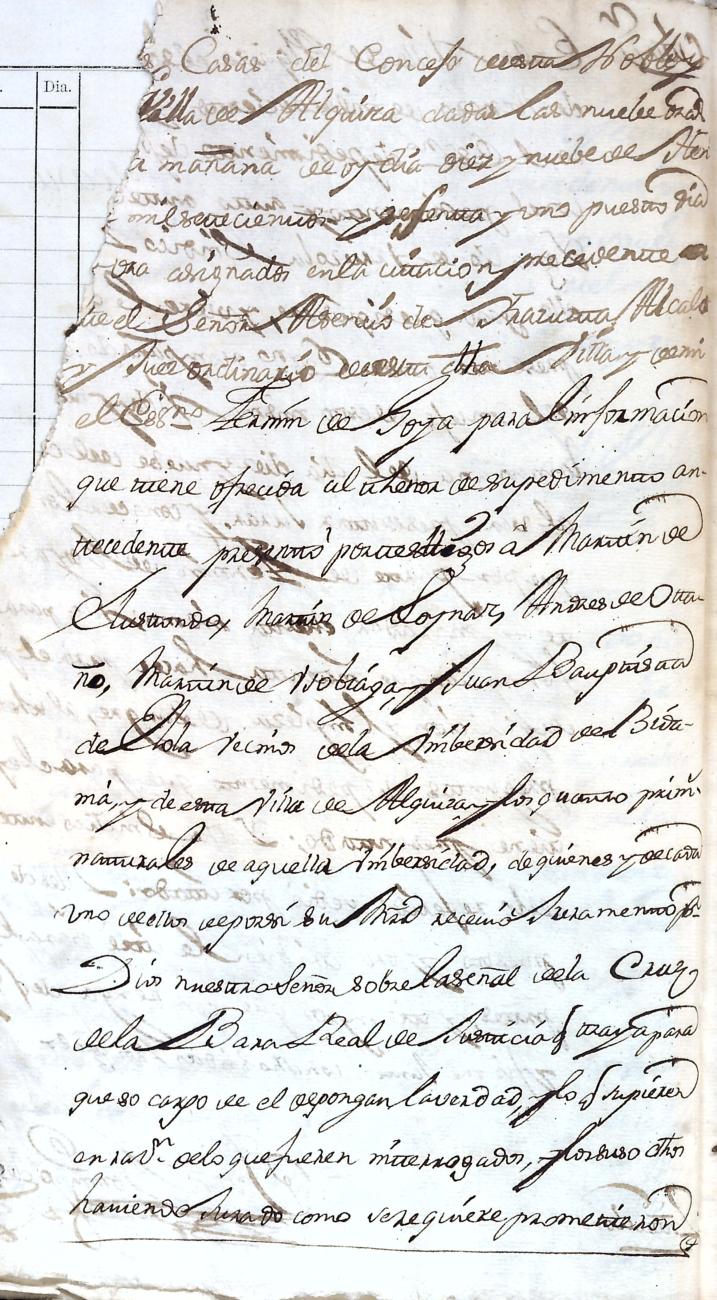 Dia.
s Casas del Concejo de esta Noble y
Villa de Alquiza dadas las nuebe horas
a mañana de oy dia diez y nuebe de
mil setecientos y setenta y uno puesto dia
ora asignados en la citacion precedente
que el Señor Asencio de Alcalde
y Juez ordinario de esta dha Villa y de mi
el Essno Fermin de Goya para la informacion
que tiene ofrecida al thenor de su pedimento an-
tecedente presentó por testigos a Martin de
Elustondo, Martin de Loynaz, Andres de Otta-
ño, Martin de Ysobiaga, y Juan Bauptista
de Elola vecinos de la Vnibersidad de Bida-
nia, y de esta Villa de Alquiza, y los quatro prim.s
naturales de aquella Vnibersidad, de quienes y de cada
vno de ellos de por si su Mrd reciviò Juramento pr
Dios nuestro Señor sobre la señal de la Cruz
de la Bara Real de Justicia q traya para
que so cargo de el depongan la verdad, y lo q supieren
en razn de lo que fueren interrogados, y los suso dhos
haviendo Jurado como se requiere prometieron